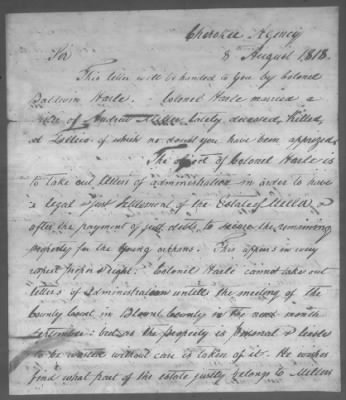 Cherokee Agency
8 August 1818.
Sir
This letter will be handed to you by Colonel
Baldwin Harle. Colonel Harle married a
of Andrew Miller lately deceased, killed
at of which no doubt you have been apprized
The object of Colonel Harle is
to take out letters of administration in order to have
a legal & just settlement of the Estate of Miller &
after the payment of just debts, to secure the remaining
property for the young orphans. This appears in every
respect proper & legal. Colonel Harle cannot take out
letters of administration untill the meeting of the
County Court in Blount County in the next month
September: but as the property is personal & leable
to be wasted without care is taken of it. He wishes
find what part of the estate justly belongs to Millers